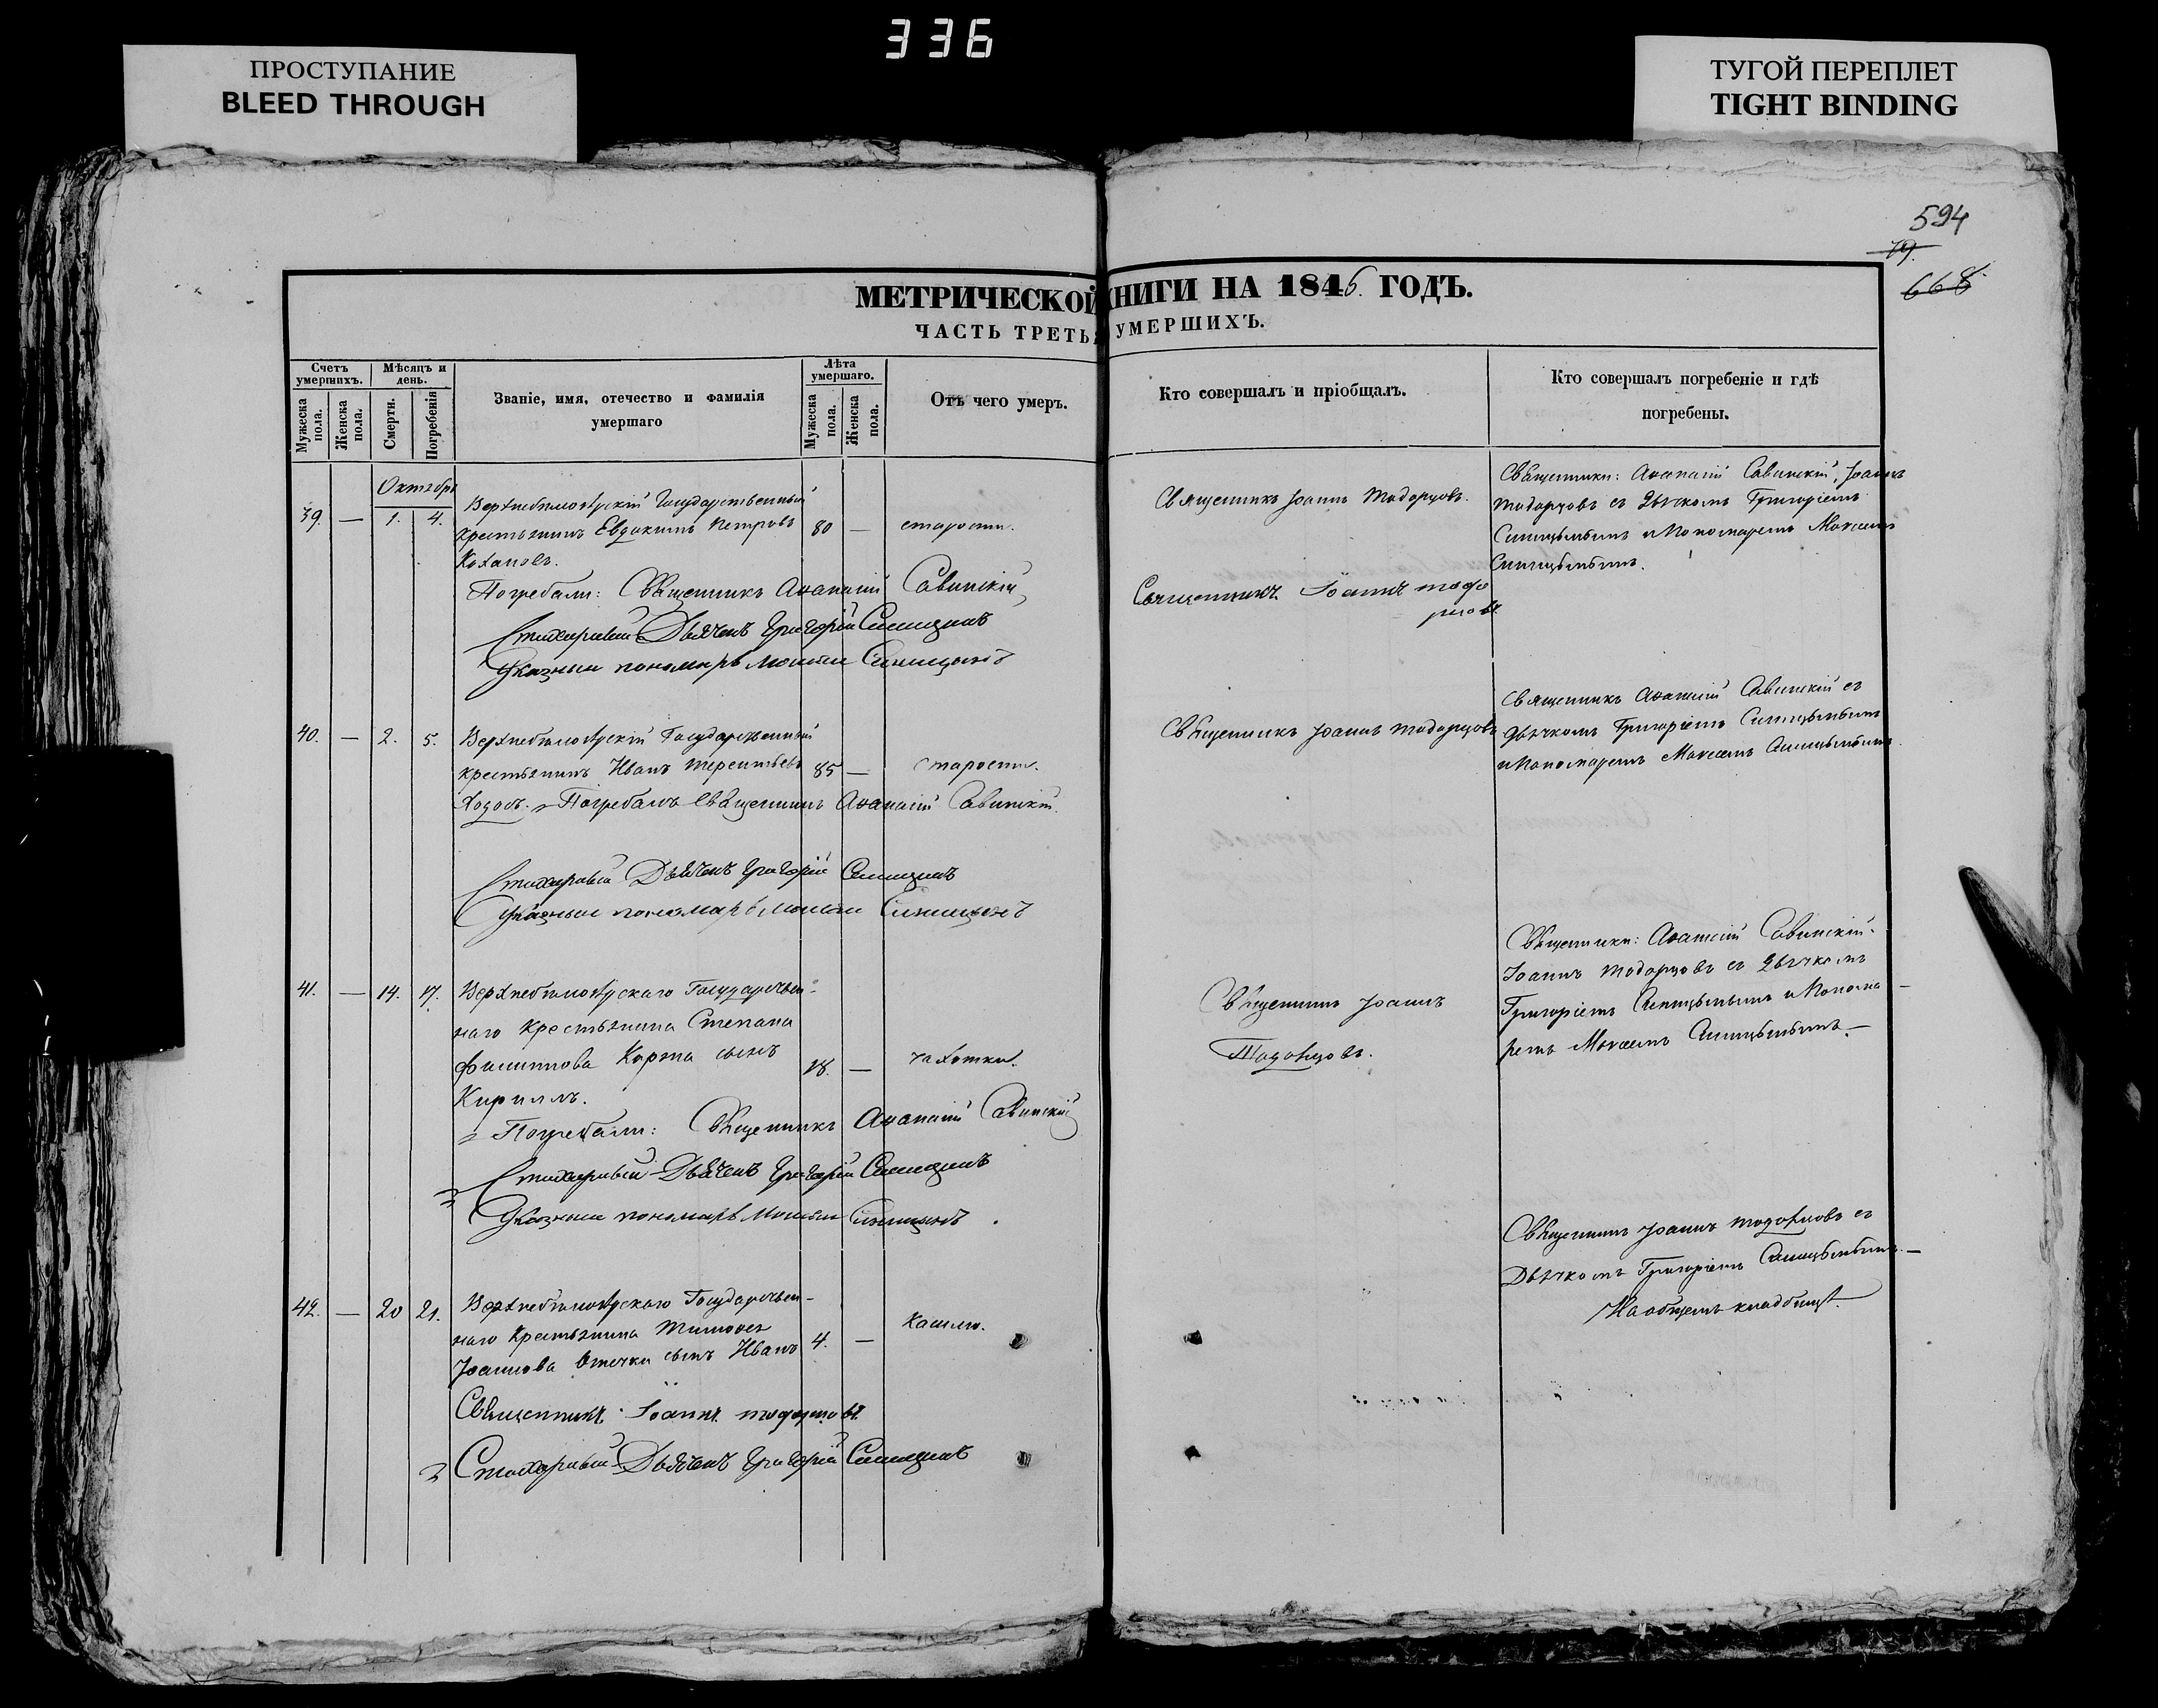 336
ПРОСТУПАНИЕ
BLEED THROUGH
ТУГОЙ ПЕРЕПЛЕТ
TIGHT BINDING
594
79.
668
МЕТРИЧЕСКОЙ КНИГИ НА 1846. ГОДЪ.
ЧАСТЬ ТРЕТЬЯ УМЕРШИХЪ.
Счетъ умершихъ.
Мѣсяцъ и день.
Званіе, имя, отечество и фамилія умершаго
Лѣта умершаго.
Отъ чего умеръ.
Кто совершалъ и пріобщалъ.
Кто совершалъ погребеніе и гдѣ погребены.
Мужеска пола.
Женска пола.
Смерти.
Погребенія
Мужеска пола.
Женска пола.
Октябрь
39. — 1. 4.
Государственный
крестьянинъ Евдокимъ Петровъ 80 — старости.
Кохановъ.
Погребали: Священникъ Аѳанасій Савинскій
Стихарный Дьячекъ Григорій Синицынъ
Указный пономарь Моисей Синицынъ
Священникъ Іоаннъ Тодорцовъ.
Священникъ Іоаннъ Тодорцовъ
Священники: Аѳанасій Савинскій, Іоаннъ
Тодорцовъ съ Дьячкомъ Григоріемъ
Синицынымъ и Пономаремъ Моисеемъ
Синицынымъ.
40. — 2. 5.
Государственный
крестьянинъ Иванъ Терентьевъ 85 — старости.
Погребалъ Священникъ Аѳанасій Савинскій.
Стихарный Дьячекъ Григорій Синицынъ
Указный пономарь Моисей Синицынъ
Священникъ Іоаннъ Тодорцовъ
Священникъ Аѳанасій Савинскій съ
Дьячкомъ Григоріемъ Синицынымъ
и Пономаремъ Моисеемъ Синицынымъ.
41. — 14. 17.
Государствен-
наго крестьянина Степана
Филиппова Коржа сынъ 18. — чахотки.
Кириллъ.
Погребали: Священникъ Аѳанасій Савинскій
Стихарный Дьячекъ Григорій Синицынъ
Указный пономарь Моисей Синицынъ.
Священникъ Іоаннъ
Тодорцовъ.
Священники: Аѳанасій Савинскій.
Іоаннъ Тодорцовъ съ Дьячкомъ
Григоріемъ Синицынымъ и Понома-
ремъ Моисеемъ Синицынымъ.—
42. — 20 21.
Государствен-
наго крестьянина Тимоѳея
Іоаннова сынъ Иванъ 4. — кашлю.
Священникъ Іоаннъ Тодорцовъ
Стихарный Дьячекъ Григорій Синицынъ
Священникъ Іоаннъ Тодорцовъ съ
Дьячкомъ Григоріемъ Синицынымъ.—
На общемъ кладбищѣ.